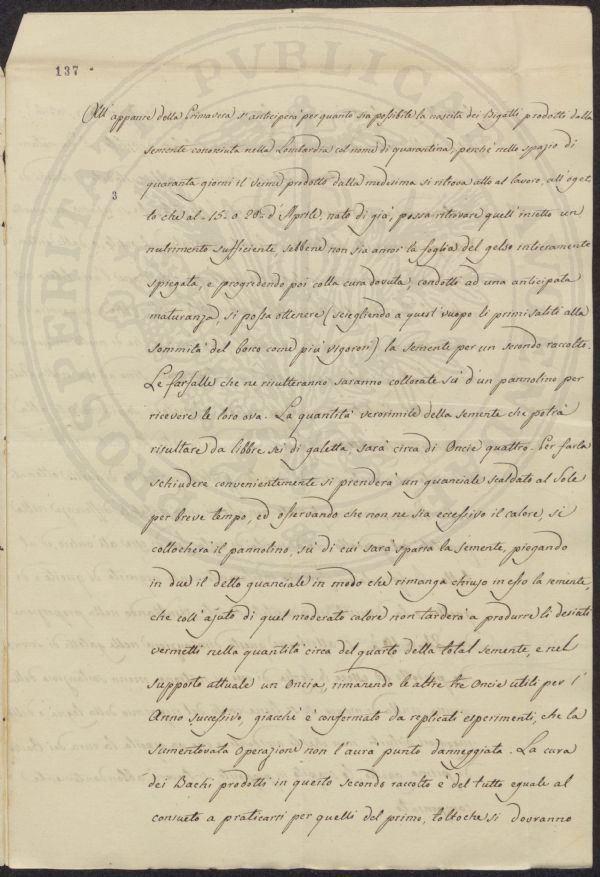 137
PUBLICAE
PROSPERITATI
3
All' apparire della Primavera s'anticiperà per quanto sia possibile la nascita dei Bigatti prodotti dalla
semente conosciuta nella Lombardia col nome di quarantina, perchè nello spazio di
quaranta giorni il verme prodotto dalla medesima si ritrova atto al lavoro, all'oget-
to che al 15 o 20 d'Aprile, nato di già, possa ritrovare quell'insetto un
nutrimento sufficiente, sebbene non sia ancor la foglia del gelso intieramente
spiegata, e progredendo poi colla cura dovuta, condotti ad una anticipata
maturanza, si possa ottenere (sciegliendo a quest'uopo li primi saliti alla
sommità del bosco come più vigorosi) la semente per un secondo raccolto.
Le farfalle che ne risulteranno saranno collocate sù d'un pannolino per
ricevere le loro ova. La quantità verosimile della semente che potrà
risultare da libbre sei di galetta, sarà circa di Oncie quattro. Per farla
schiudere convenientemente si prenderà un guanciale scaldato al Sole
per breve tempo, ed osservando che non ne sia eccessivo il calore, si
collocherà il pannolino, sù di cui sarà sparsa la semente, piegando
in due il detto guanciale in modo che rimanga chiuso in esso la semente,
che coll'ajuto di quel moderato calore non tarderà a produrre li desiati
vermetti nella quantità circa del quarto della total semente, e nel
supposto attuale un Oncia, rimanendo le altre tre Oncie utili per l'
Anno successivo, giacchè è confermato da replicati esperimenti, che la
sumentovata operazione non l'aurà punto danneggiata. La cura
dei Bachi prodotti in questo secondo raccolto è del tutto eguale al
consueto a praticarsi per quelli del primo, toltochè si dovranno